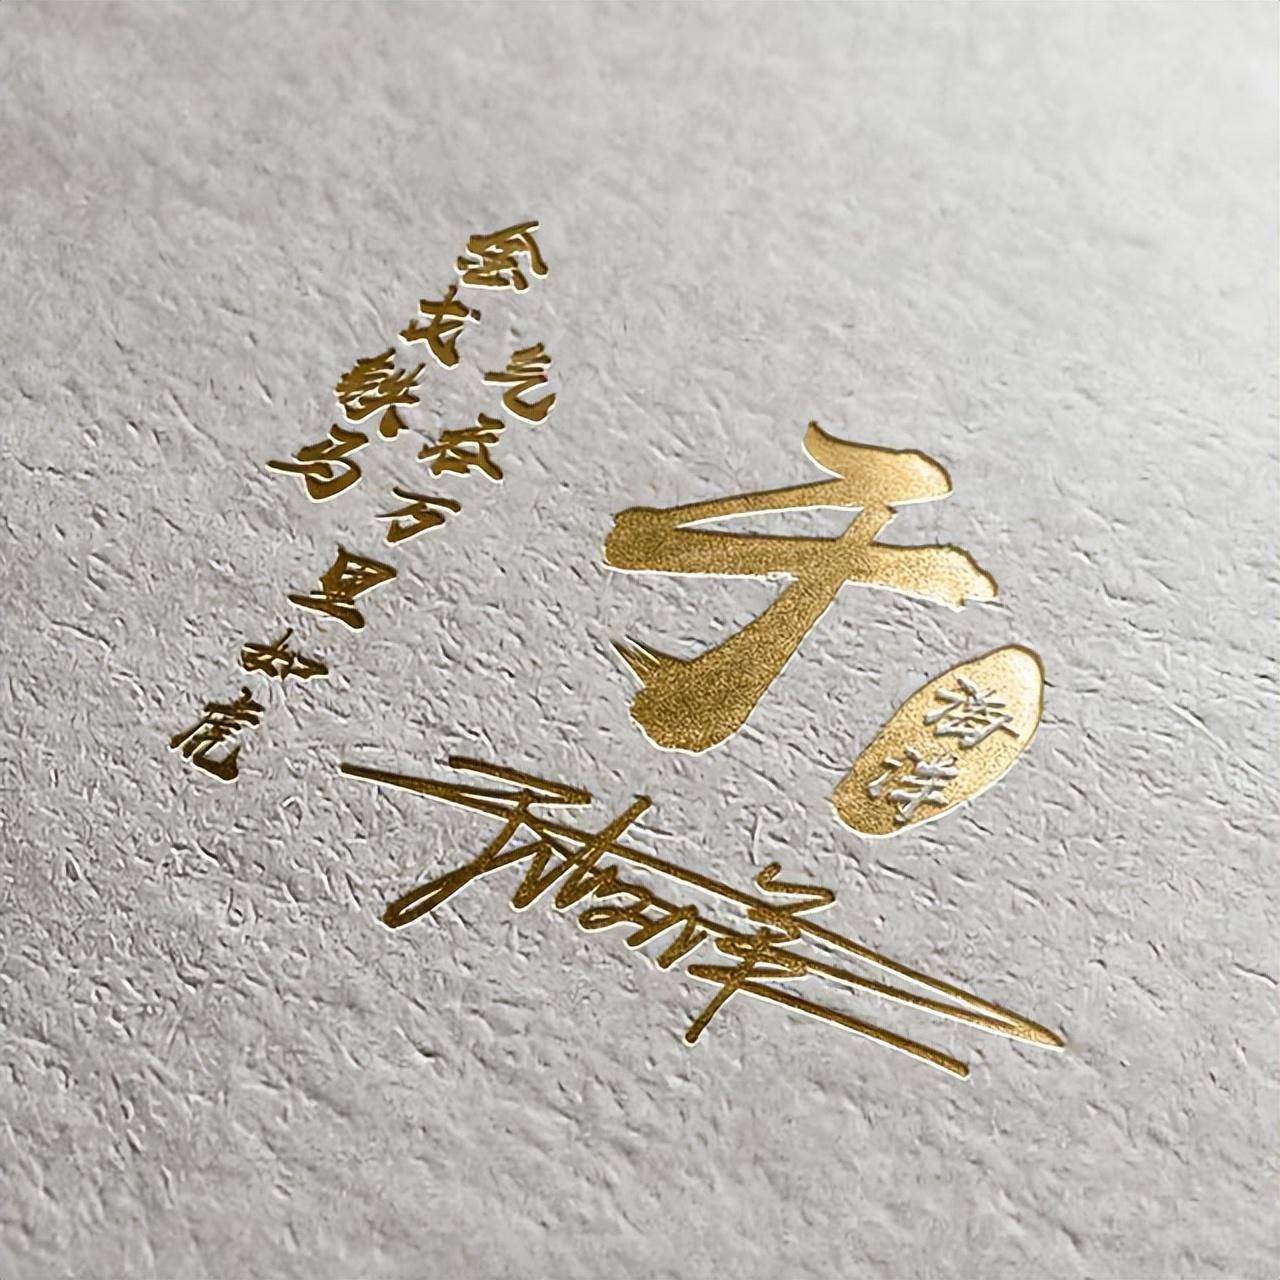 金戈铁马
气吞万里如虎
于
海洋